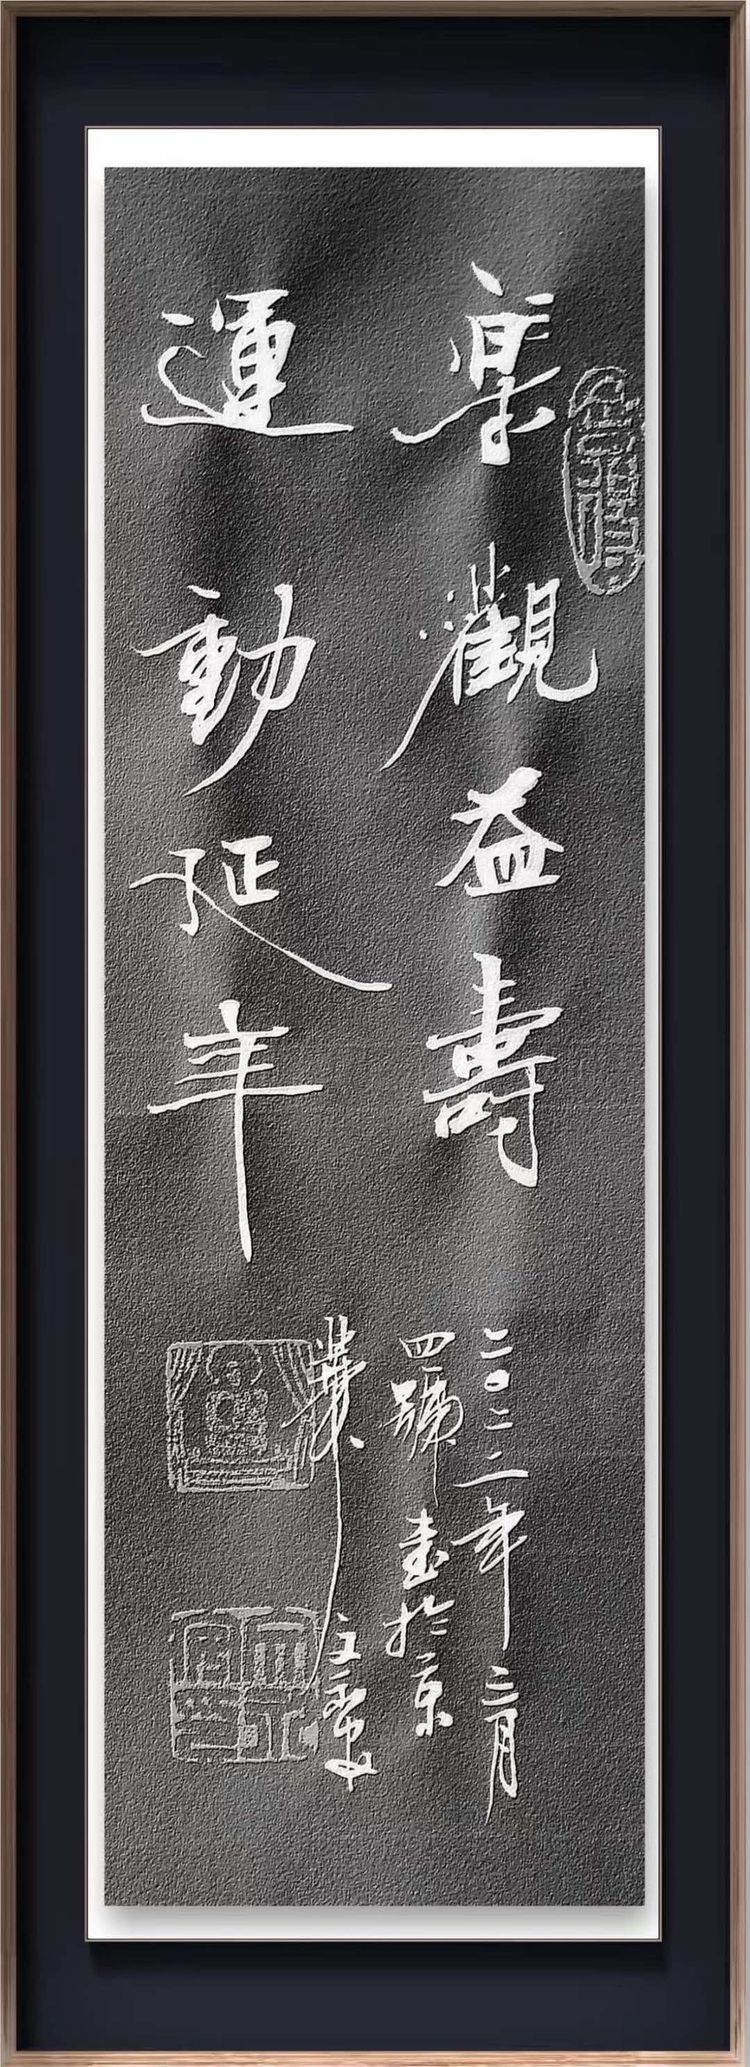 樂觀益壽
運動延年
二〇二二年二月
四號書於京